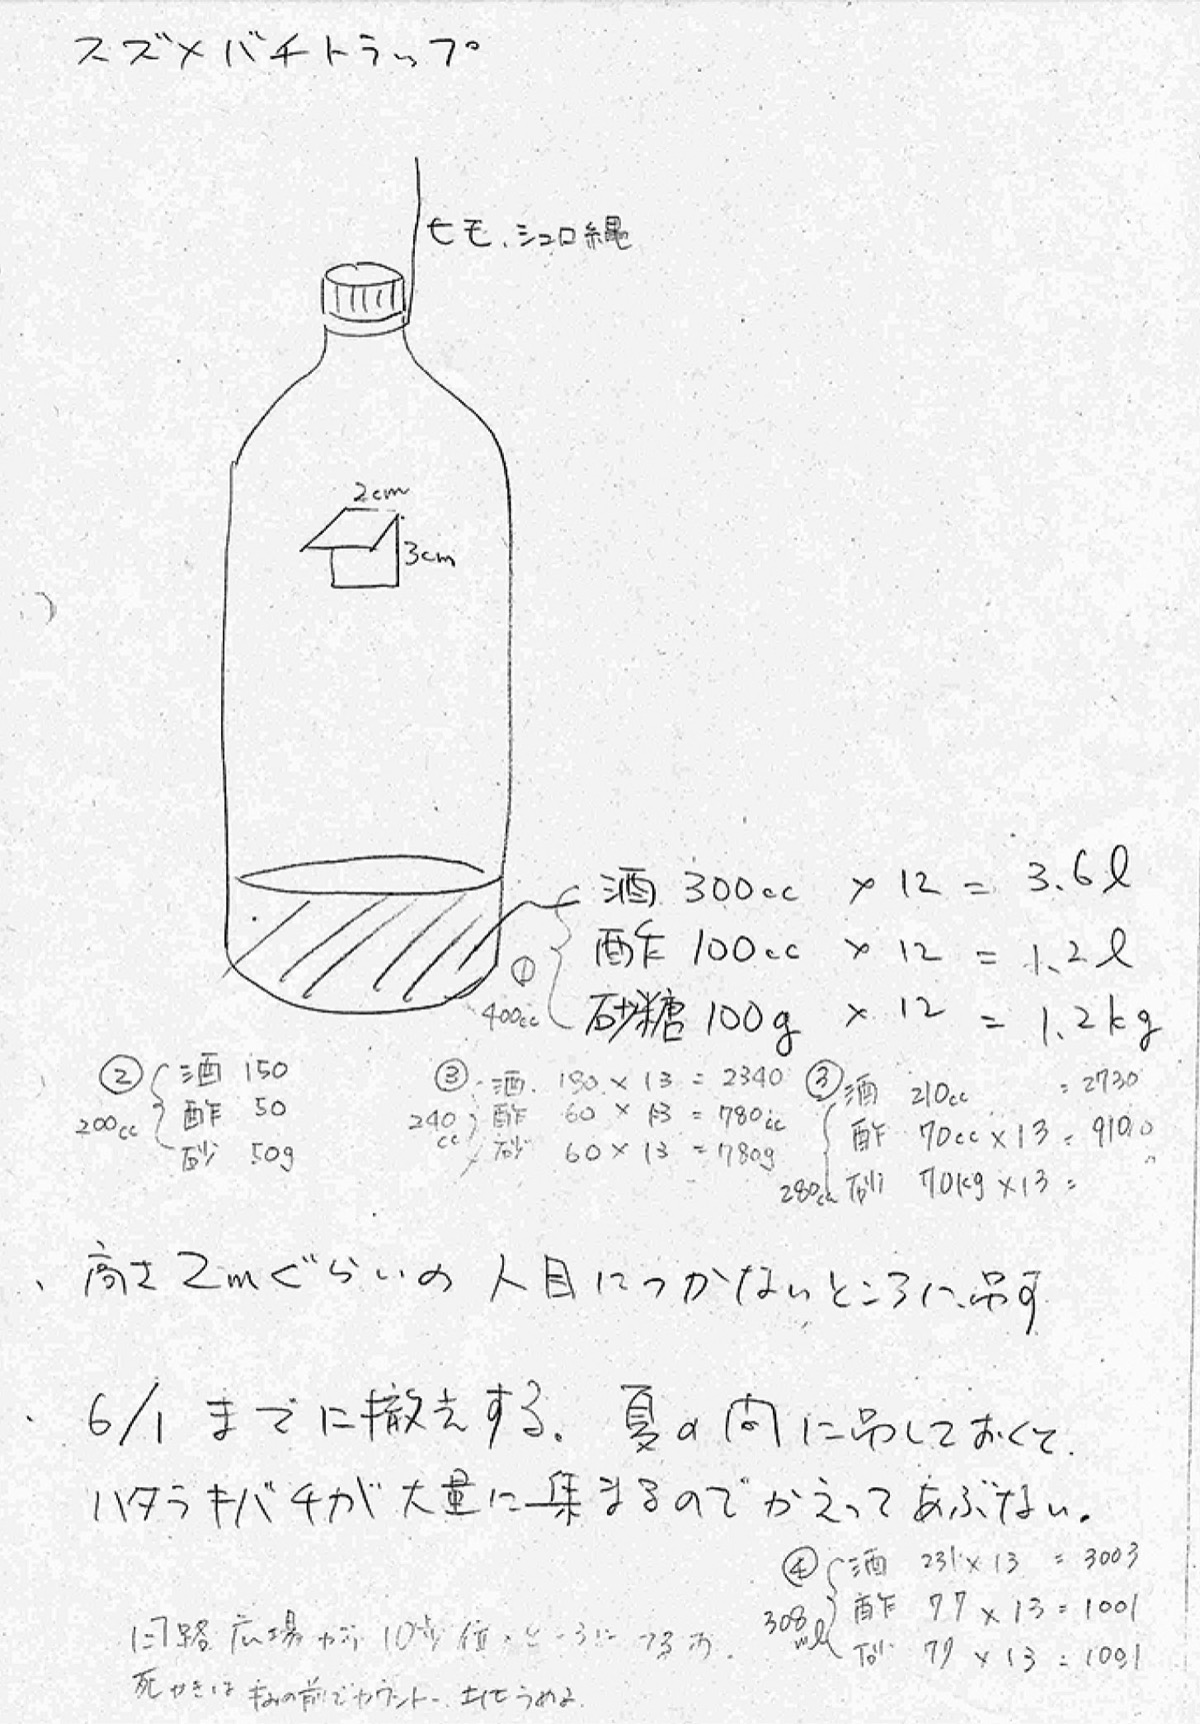 スズメバチトラップ
ヒモ、シュロ縄
2cm
3cm
酒 300cc × 12 = 3.6l
酢 100cc × 12 = 1.2l
砂糖 100g × 12 = 1.2kg
① 400cc
② 200cc
酒 150
酢 50
砂 50g
③ 240cc
酒 180 × 13 = 2340
酢 60 × 13 = 780cc
砂 60 × 13 = 780g
③ 280cc
酒 210cc = 2730
酢 70cc × 13 = 910
砂 70kg × 13 =
、高さ2mぐらいの人目につかないところに吊す
・6/1までに撤去する。夏の間に吊しておくと、
ハタラキバチが大量に集まるのでかえってあぶない。
④ 308ml
酒 231 × 13 = 3003
酢 77 × 13 = 1001
砂 77 × 13 = 1001
広場から10歩位
死がきは 前でカウント